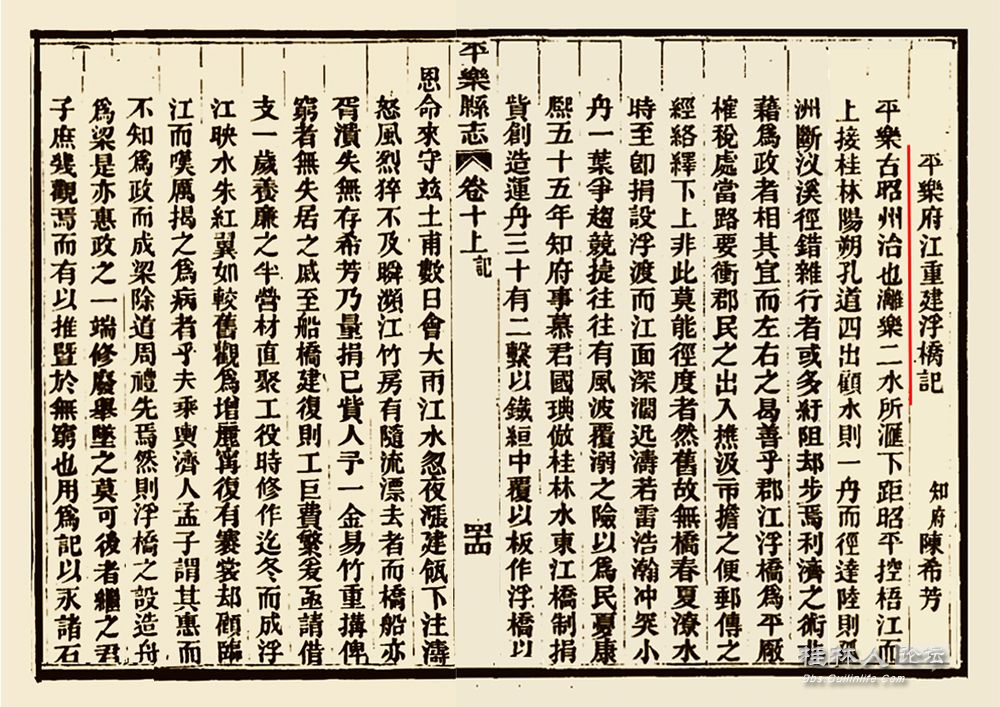 平樂府江重建浮橋記
知府陳希芳
平樂古昭州治也灕樂二水所滙下距昭平控梧江而
上接桂林陽朔孔道四出顧水則一舟而徑達陸則
洲斷汊溪徑錯雜行者或多紆阻却步焉利濟之術
藉為政者相其宜而左右之曷善乎郡江浮橋為平厰
榷稅處當路要衝郡民之出入樵汲市擔之便郵傳之
經絡繹下上非此莫能徑度者然舊故無橋春夏潦水
時至卽捐設浮渡而江面深濶迅濤若雷浩瀚冲突小
舟一葉爭趨競㨗往往有風波覆溺之險以為民憂康
熙五十五年知府事慕君國琠倣桂林水東江橋制捐
貲創造運舟三十有二繫以鐵絙中覆以板作浮橋以
平樂縣志 卷十上 記 四十四
恩命來守兹土甫數日會大雨江水忽夜漲建瓴下注濤
怒風烈猝不及瞬瀕江竹房有隨流漂去者而橋船亦
胥潰失無存希芳乃量捐已貲人予一金易竹重搆俾
窮者無失居之戚至船橋建復則工巨費繁爰亟請借
支一歲養廉之半營材直聚工役時修作迄冬而成浮
江映水朱紅翼如較舊觀為增麗寗復有褰裳却顧臨
江而嘆厲揭之為病者乎夫乘輿濟人孟子謂其惠而
不知為政而成梁除道周禮先焉然則浮橋之設造舟
為梁是亦惠政之一端修廢舉墜之莫可後者繼之君
子庶幾觀焉而有以推曁於無窮也用為記以永諸石
桂林人论坛
Bbs.Guilinlife.Com